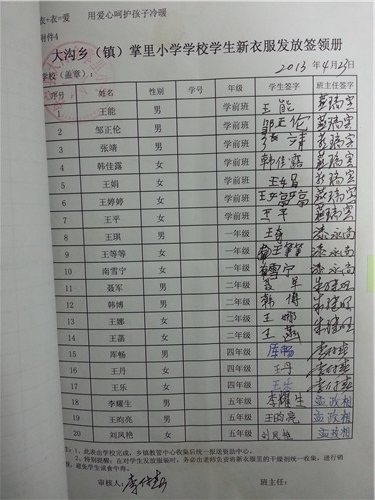 衣+衣=爱 用爱心呵护孩子冷暖
附件4
大沟乡（镇）掌里小学学校学生新衣服发放签领册
学校（盖章）： 2013年4月23日
序号 姓名 性别 学号 年级 学生签字 班主任签字
1 王能 男 学前班 王能
2 邹正伦 男 学前班 邹正伦
3 张靖 男 学前班 张靖
4 韩佳露 女 学前班 韩佳露
5 王娟 女 学前班 王娟
6 王婷婷 女 学前班 王婷婷
7 王平 女 学前班 王平
8 王琪 男 一年级 王琪 漆永尚
9 王等等 女 一年级 王等等 漆永尚
10 南雪宁 女 一年级 南雪宁 漆永尚
11 聂军 男 二年级 聂军
12 韩博 男 二年级 韩博
13 王娜 女 二年级 王娜
14 王菡 女 二年级 王菡
15 厍畅 男 四年级 厍畅
16 王丹 女 四年级 王丹
17 王乐 女 四年级 王乐
18 李耀生 男 五年级 李耀生 孟政相
19 王昀亮 男 五年级 王昀亮 孟政相
20 刘凤艳 女 五年级 刘凤艳 孟政相
注：1，此表由学校完成，乡镇教管中心收后统一报送资助中心。
2，特别提醒：在对学生发放服装时，务必由老师负责将新衣服里的干燥剂统一收集，进行销
毁，避免学生误食中毒。
审核人：